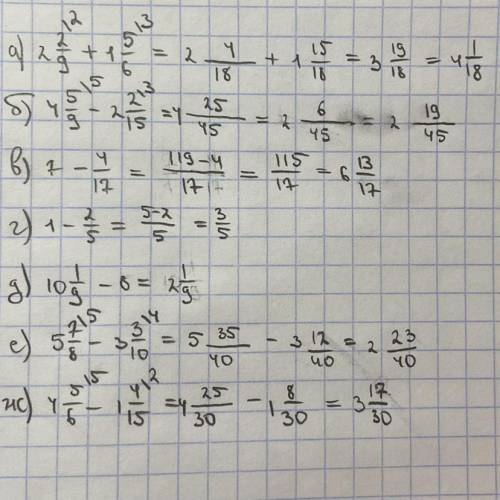 а) 2 2/9 \2 + 1 5/6 \3 = 2 4/18 + 1 15/18 = 3 19/18 = 4 1/18
б) 4 5/9 \5 - 2 2/15 \3 = 4 25/45 = 2 6/45 = 2 19/45
в) 7 - 4/17 = 119-4/17 = 115/17 = 6 13/17
г) 1 - 2/5 = 5-2/5 = 3/5
д) 10 1/9 - 8 = 2 1/9
е) 5 7/8 \5 - 3 3/10 \4 = 5 35/40 - 3 12/40 = 2 23/40
ж) 4 5/6 \5 - 1 4/15 \2 = 4 25/30 - 1 8/30 = 3 17/30